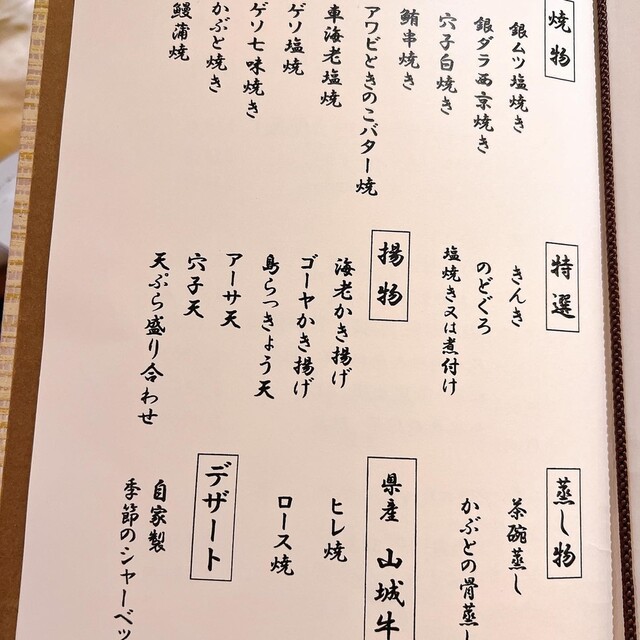 焼物
銀ムツ塩焼き
銀ダラ西京焼き
穴子白焼き
鮪串焼き
アワビときのこバター焼
車海老塩焼
ゲソ塩焼
ゲソ七味焼き
かぶと焼き
鰻蒲焼
特選
きんき
のどぐろ
塩焼き又は煮付け
揚物
海老かき揚げ
ゴーヤかき揚げ
島らっきょう天
アーサ天
穴子天
天ぷら盛り合わせ
蒸し物
茶碗蒸し
かぶとの骨蒸し
県産 山城牛
ヒレ焼
ロース焼
デザート
自家製
季節のシャーベッ